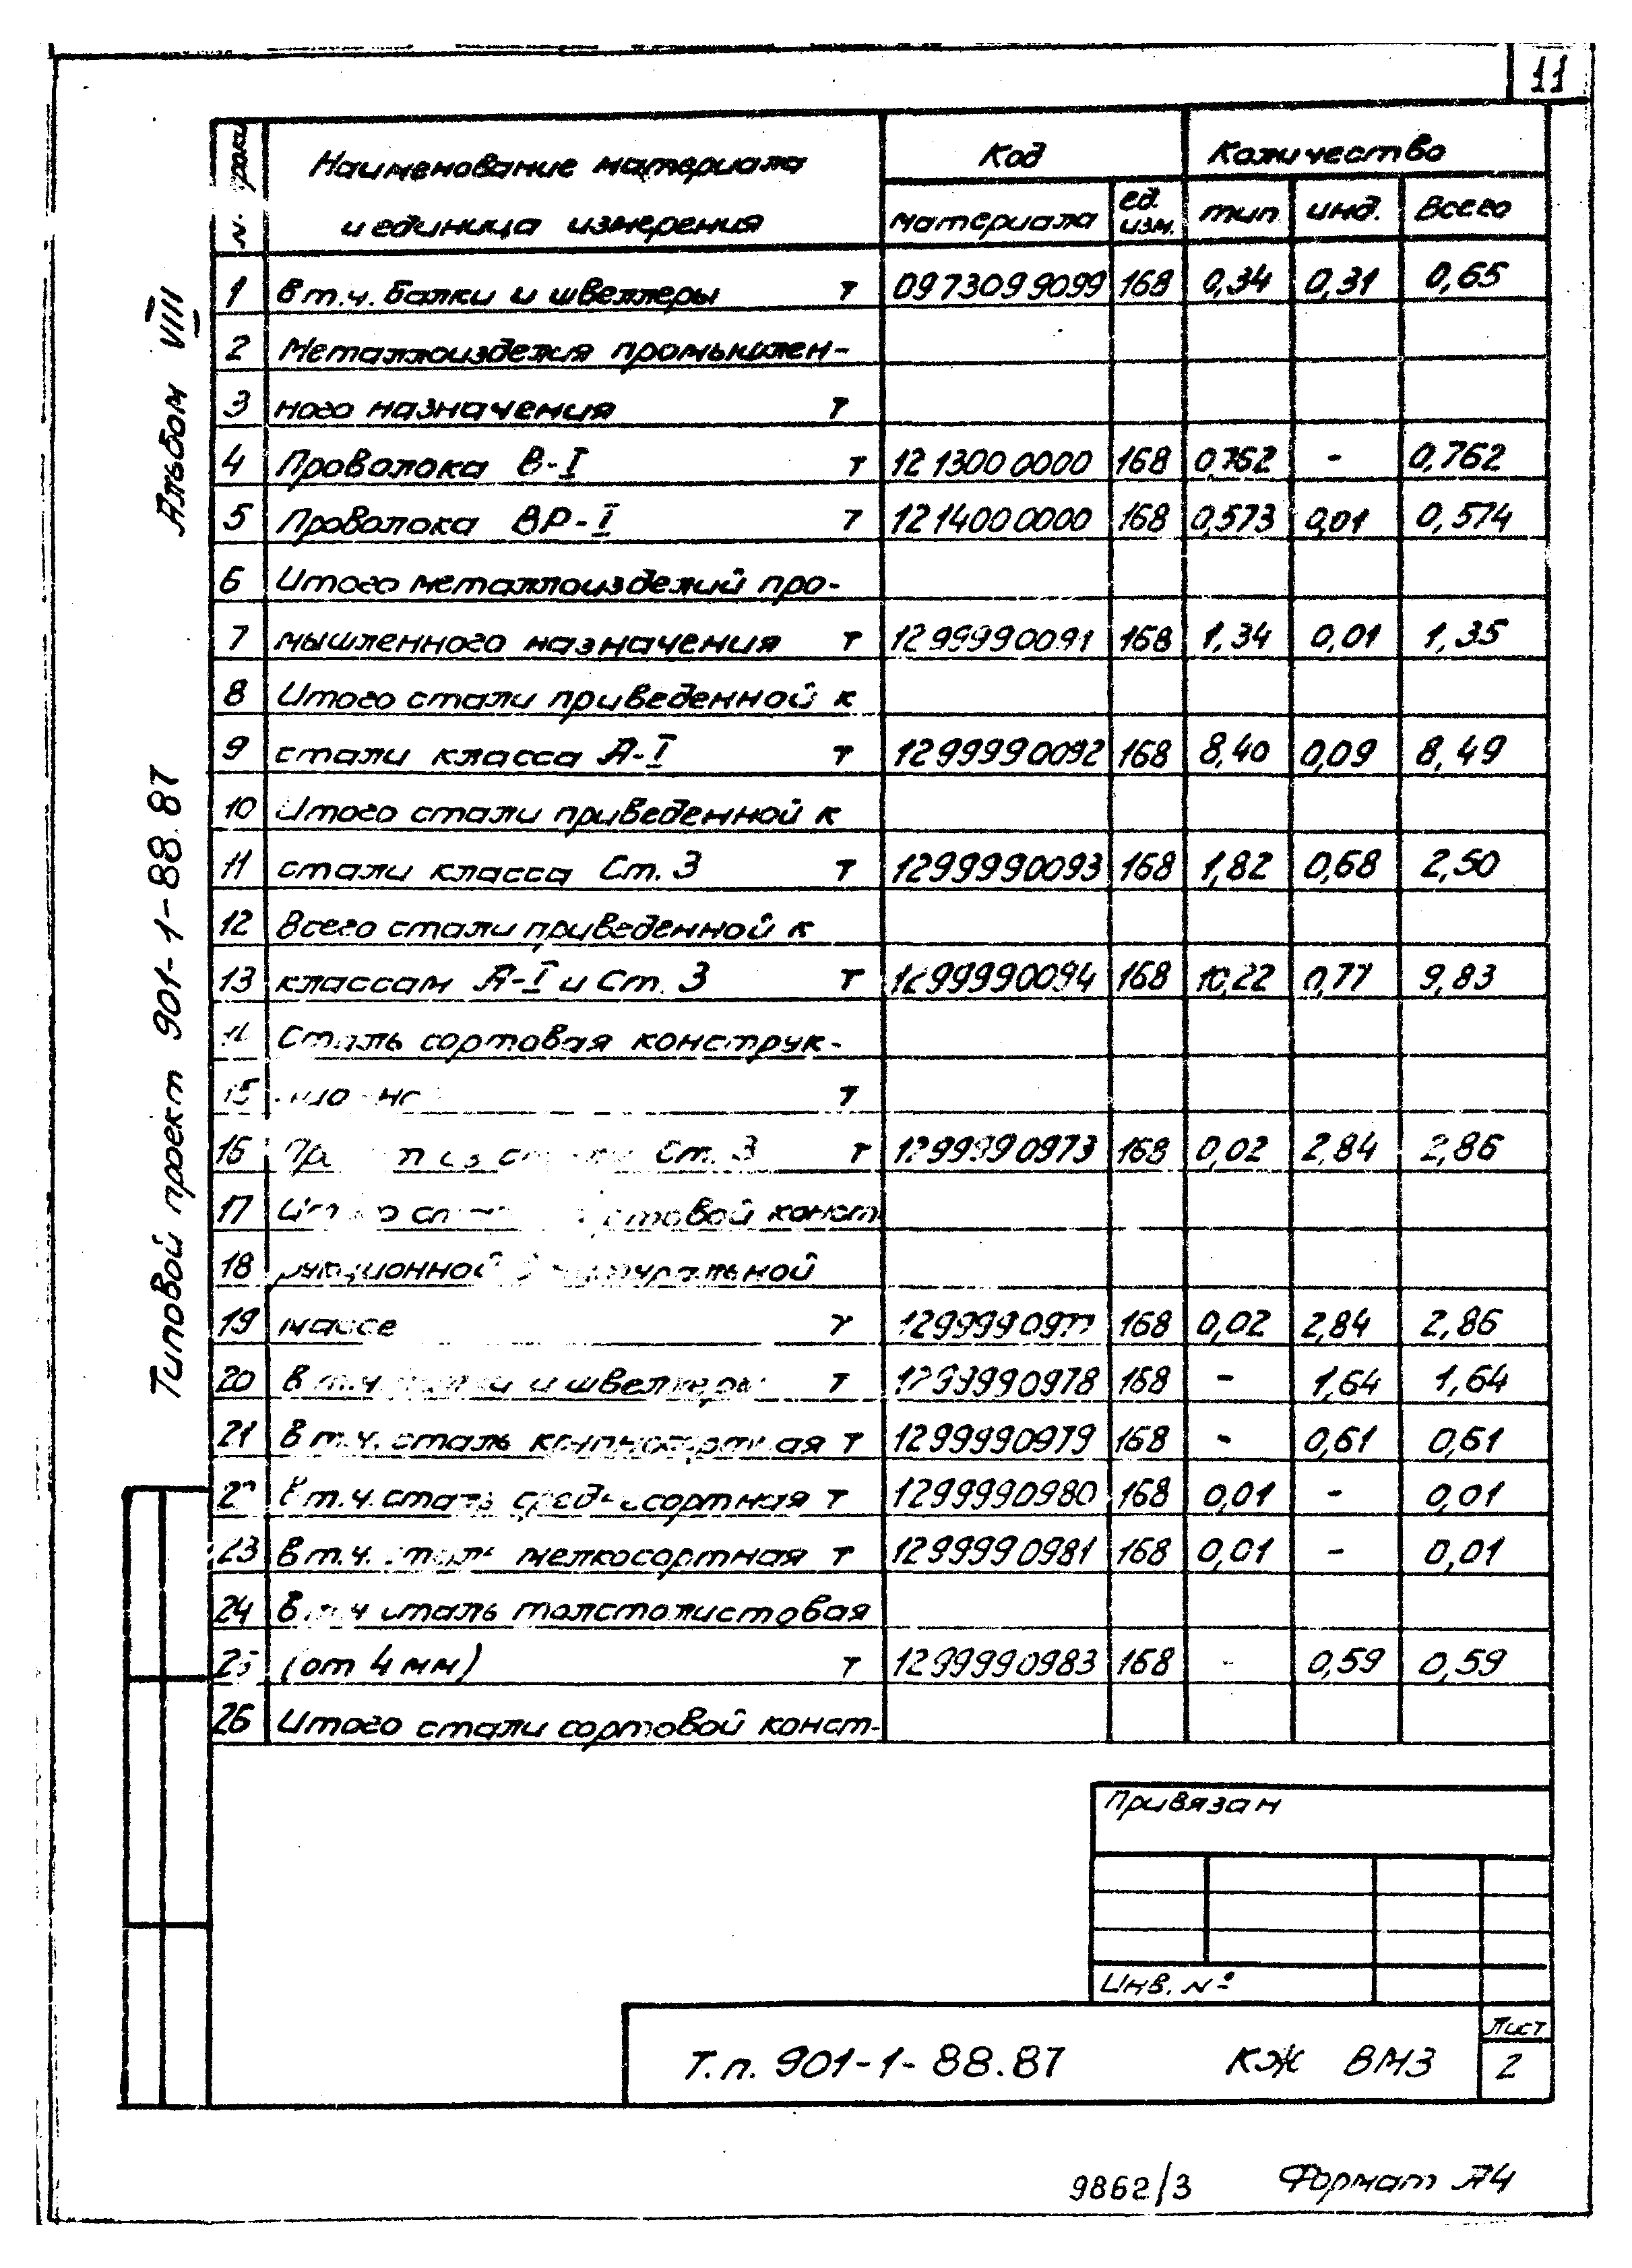 11
Наименование материала
и единица измерения
Код
Количество
материала
ед. изм.
тип
инд.
Всего
1 в т.ч. балки и швеллеры т 0973099099 168 0,34 0,31 0,65
2 Металлоизделия промышлен-
3 ного назначения т
4 Проволока В-I т 1213000000 168 0,762 - 0,762
5 Проволока ВР-I т 1214000000 168 0,573 0,01 0,574
6 Итого металлоизделий про-
7 мышленного назначения т 1299990091 168 1,34 0,01 1,35
8 Итого стали приведенной к
9 стали класса А-I т 1299990092 168 8,40 0,09 8,49
10 Итого стали приведенной к
11 стали класса Ст. 3 т 1299990093 168 1,82 0,68 2,50
12 Всего стали приведенной к
13 классам А-I и Ст. 3 т 1299990094 168 10,22 0,77 9,83
14 Сталь сортовая конструк-
15 т
16 Ст. 3 т 1299990973 168 0,02 2,84 2,86
17 конст
18 рукционной натуральной
19 массе т 1299990977 168 0,02 2,84 2,86
20 в т.ч. балки и швеллеры т 1299990978 168 - 1,64 1,64
21 в т.ч. сталь крупносортная т 1299990979 168 - 0,61 0,61
22 в т.ч. сталь среднесортная т 1299990980 168 0,01 - 0,01
23 в т.ч. сталь мелкосортная т 1299990981 168 0,01 - 0,01
24 в т.ч. сталь толстолистовая
25 (от 4 мм) т 1299990983 168 - 0,59 0,59
26 Итого стали сортовой конст-
Альбом VIII
Типовой проект 901-1-88.87
Привязан
Инв. №
Т.п. 901-1-88.87 КЖ ВМЗ
Лист
2
9862/3 Формат А4